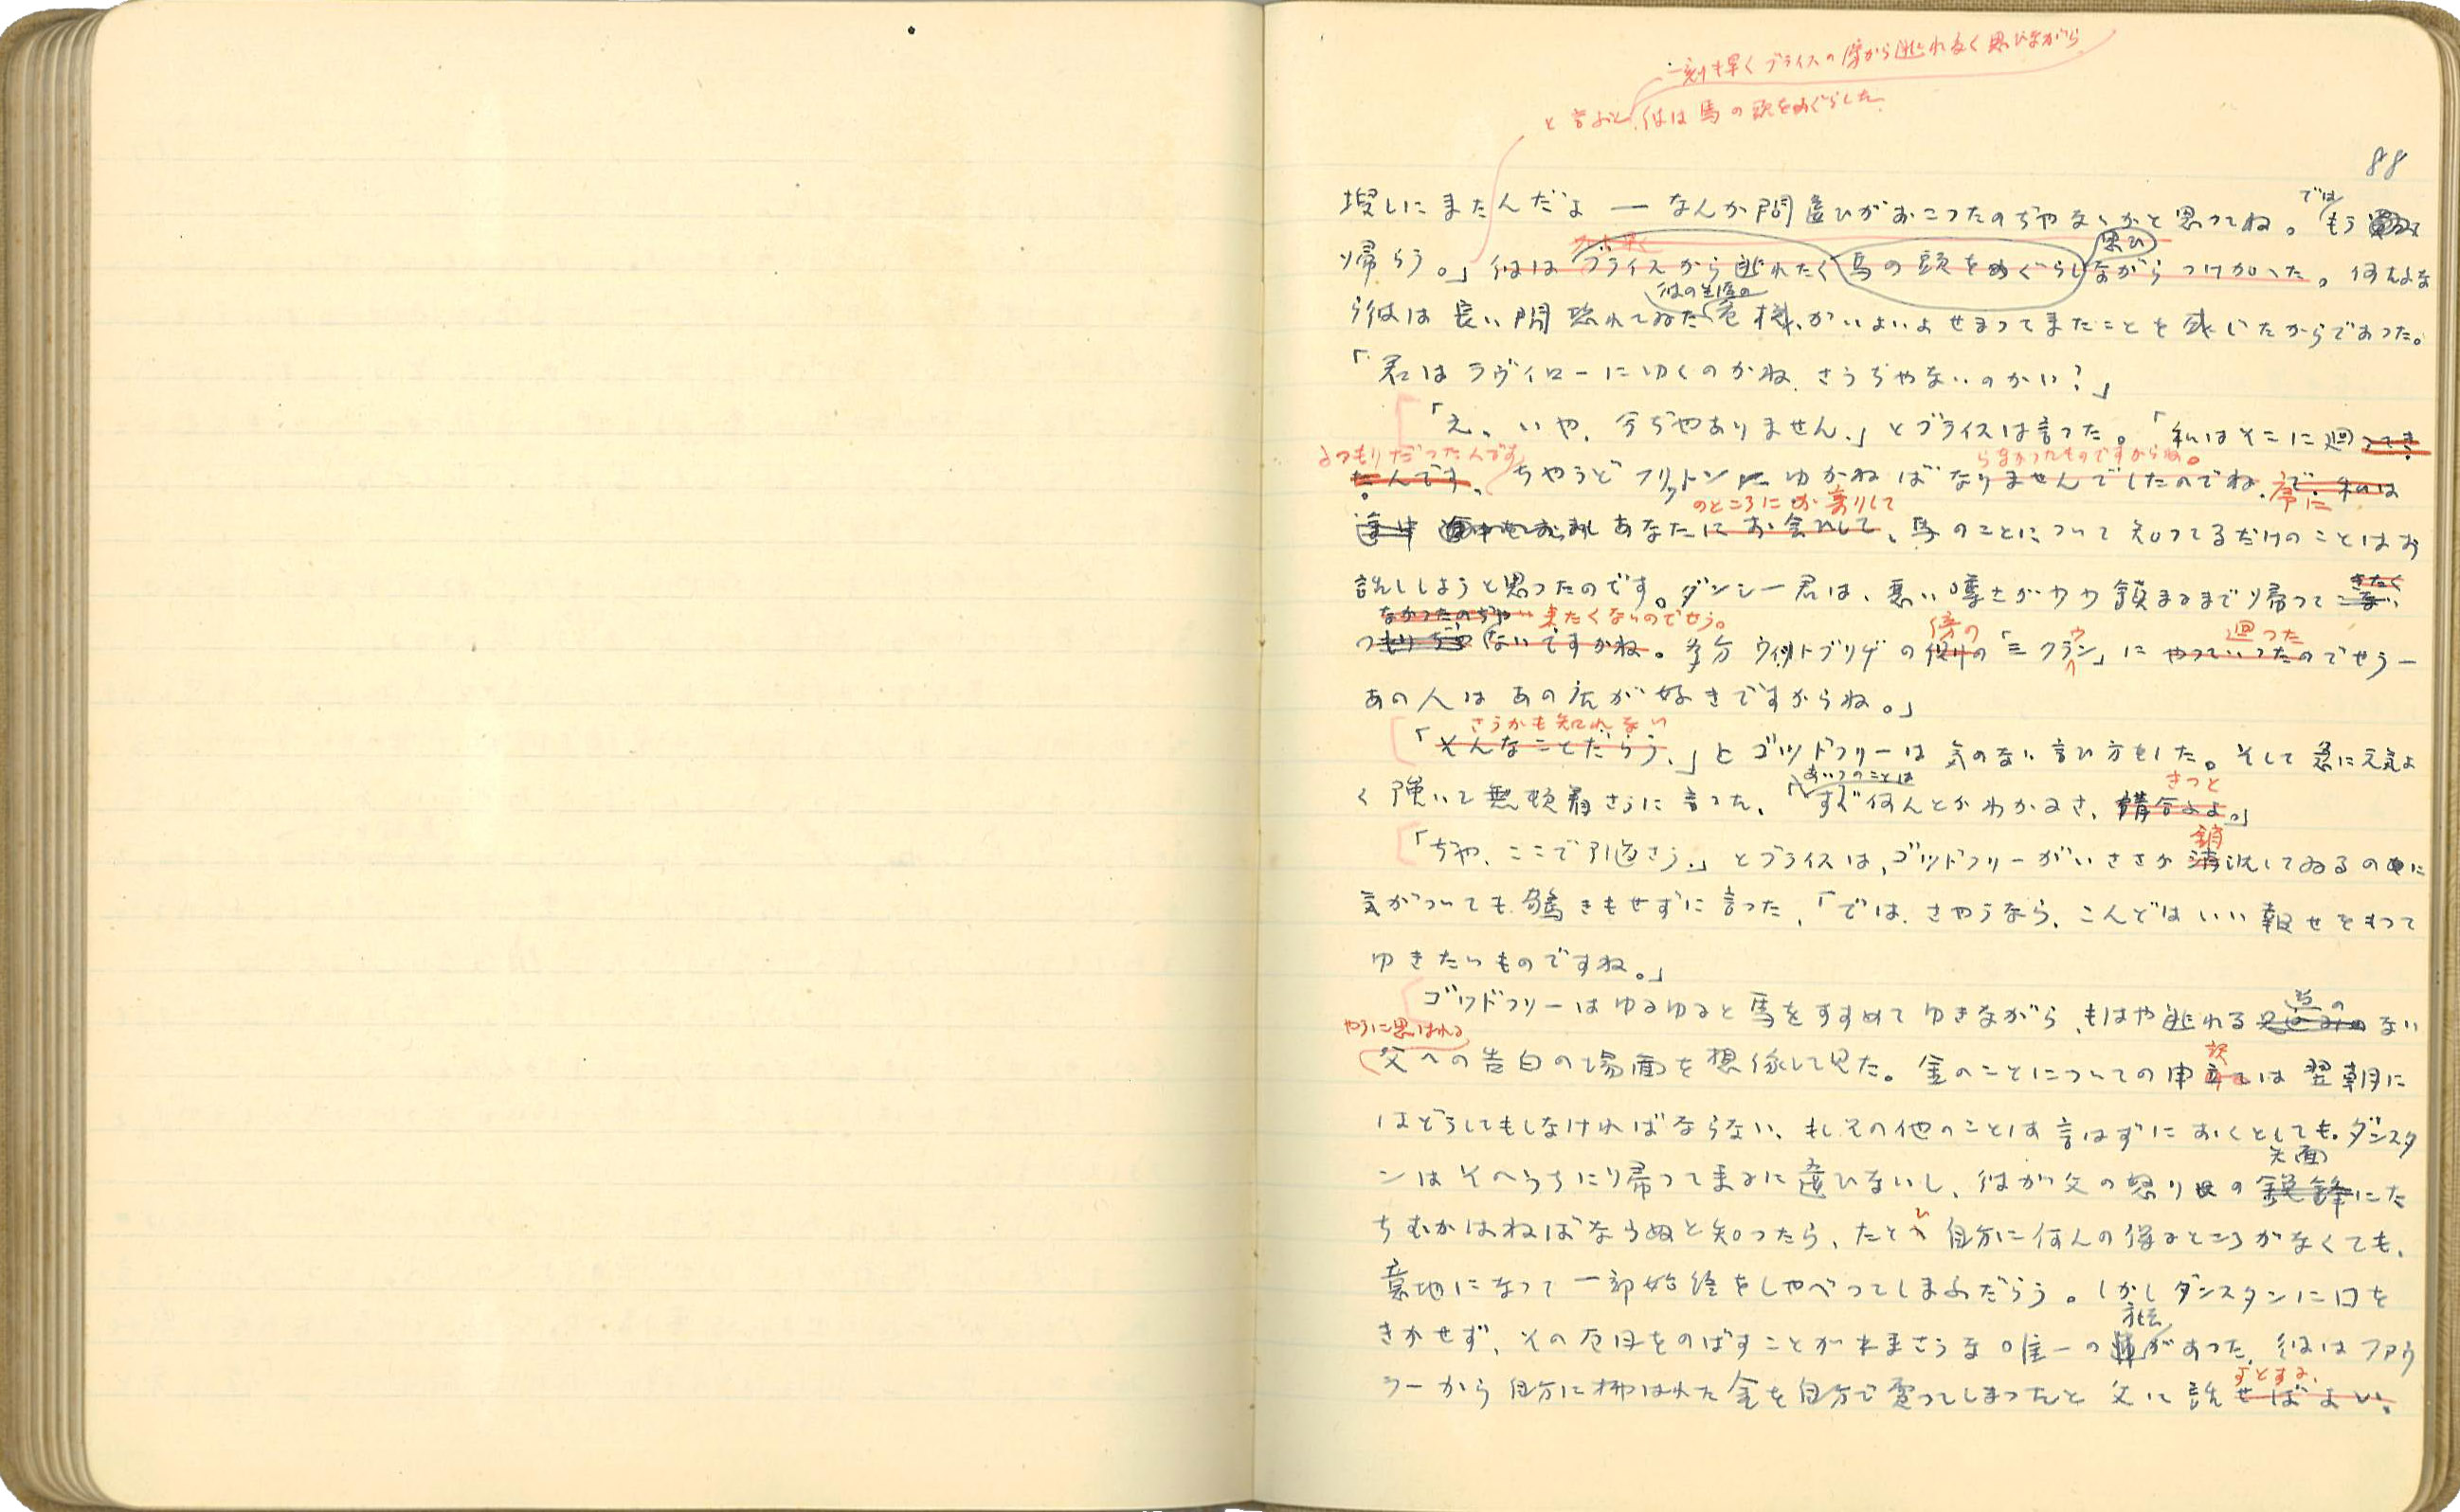 一刻も早くブライスの傍から逃れたく思ひながら
と言ふと、彼は馬の頭をめぐらした。
88
では
捜しにきたんだよ ― なんか間違ひがおこつたのぢやないかと思つてね。もう
思ひ
帰らう。」彼はブライスから逃れたく馬の頭をめぐらしながらつけ加へた。何故な
彼の生涯の
ら彼は長い間恐れてゐた危機がいよいよせまつてきたことを感じたからであつた。
「君はラヴィローにゆくのかね、さうぢやないのかい?」
「え、いや、今ぢやありません、」とブライスは言つた。「私はそこに廻つてき
るつもりだつたんです らなかつたものですからね。
たんです、ちやうどフリットンにゆかねばなりませんでしたのでね、で、私は
序に
のところにお寄りして
途中 あなたにお会ひして、馬のことについて知つてるだけのことはお
話ししようと思つたのです。ダンシー君は、悪い噂さがやや鎮まるまで帰つて
きたく
なかつたのぢや 来たくないのでせう。 傍の ウ 廻つた
つもりぢやないですかね。多分ウィットブリヂの 「三クラン」にやつていつたのでせう―
あの人はあの店が好きですからね。」
さうかも知れない
「そんなことだらう、」とゴッドフリーは気のない言ひ方をした。そして急に元気よ
あいつのことは きつと
く強いて無頓着さうに言つた、「すぐ何んとかわかるさ、講合ふよ。」
銷
「ぢや、ここで引返さう、」とブライスは、ゴッドフリーがいささか消沈してゐるのに
気がついても驚きもせずに言つた、「では、さやうなら、こんどはいい報せをもつて
ゆきたいものですね。」
道の
ゴッドフリーはゆるゆると馬をすすめてゆきながら、もはや逃れる見込みのない
やうに思はれる 訳
父への告白の場面を想像して見た。金のことについての申立ては翌朝に
はどうしてもしなければならない、もしその他のことは言はずにおくとしても。ダンスタ
矢面
ンはそのうちに帰つて来るに違ひないし、彼が父の怒りの鋭鋒にた
ひ
ちむかはねばならぬと知つたら、たとへ自分に何んの得るところがなくても、
意地になつて一部始終をしやべつてしまふだらう。しかしダンスタンに口を
きかせず、その厄日をのばすことが出来さうな唯一の があつた、彼はファウ
ずとする、
ラーから自分に払はれた金を自分で費つてしまつたと父に話せばよい、